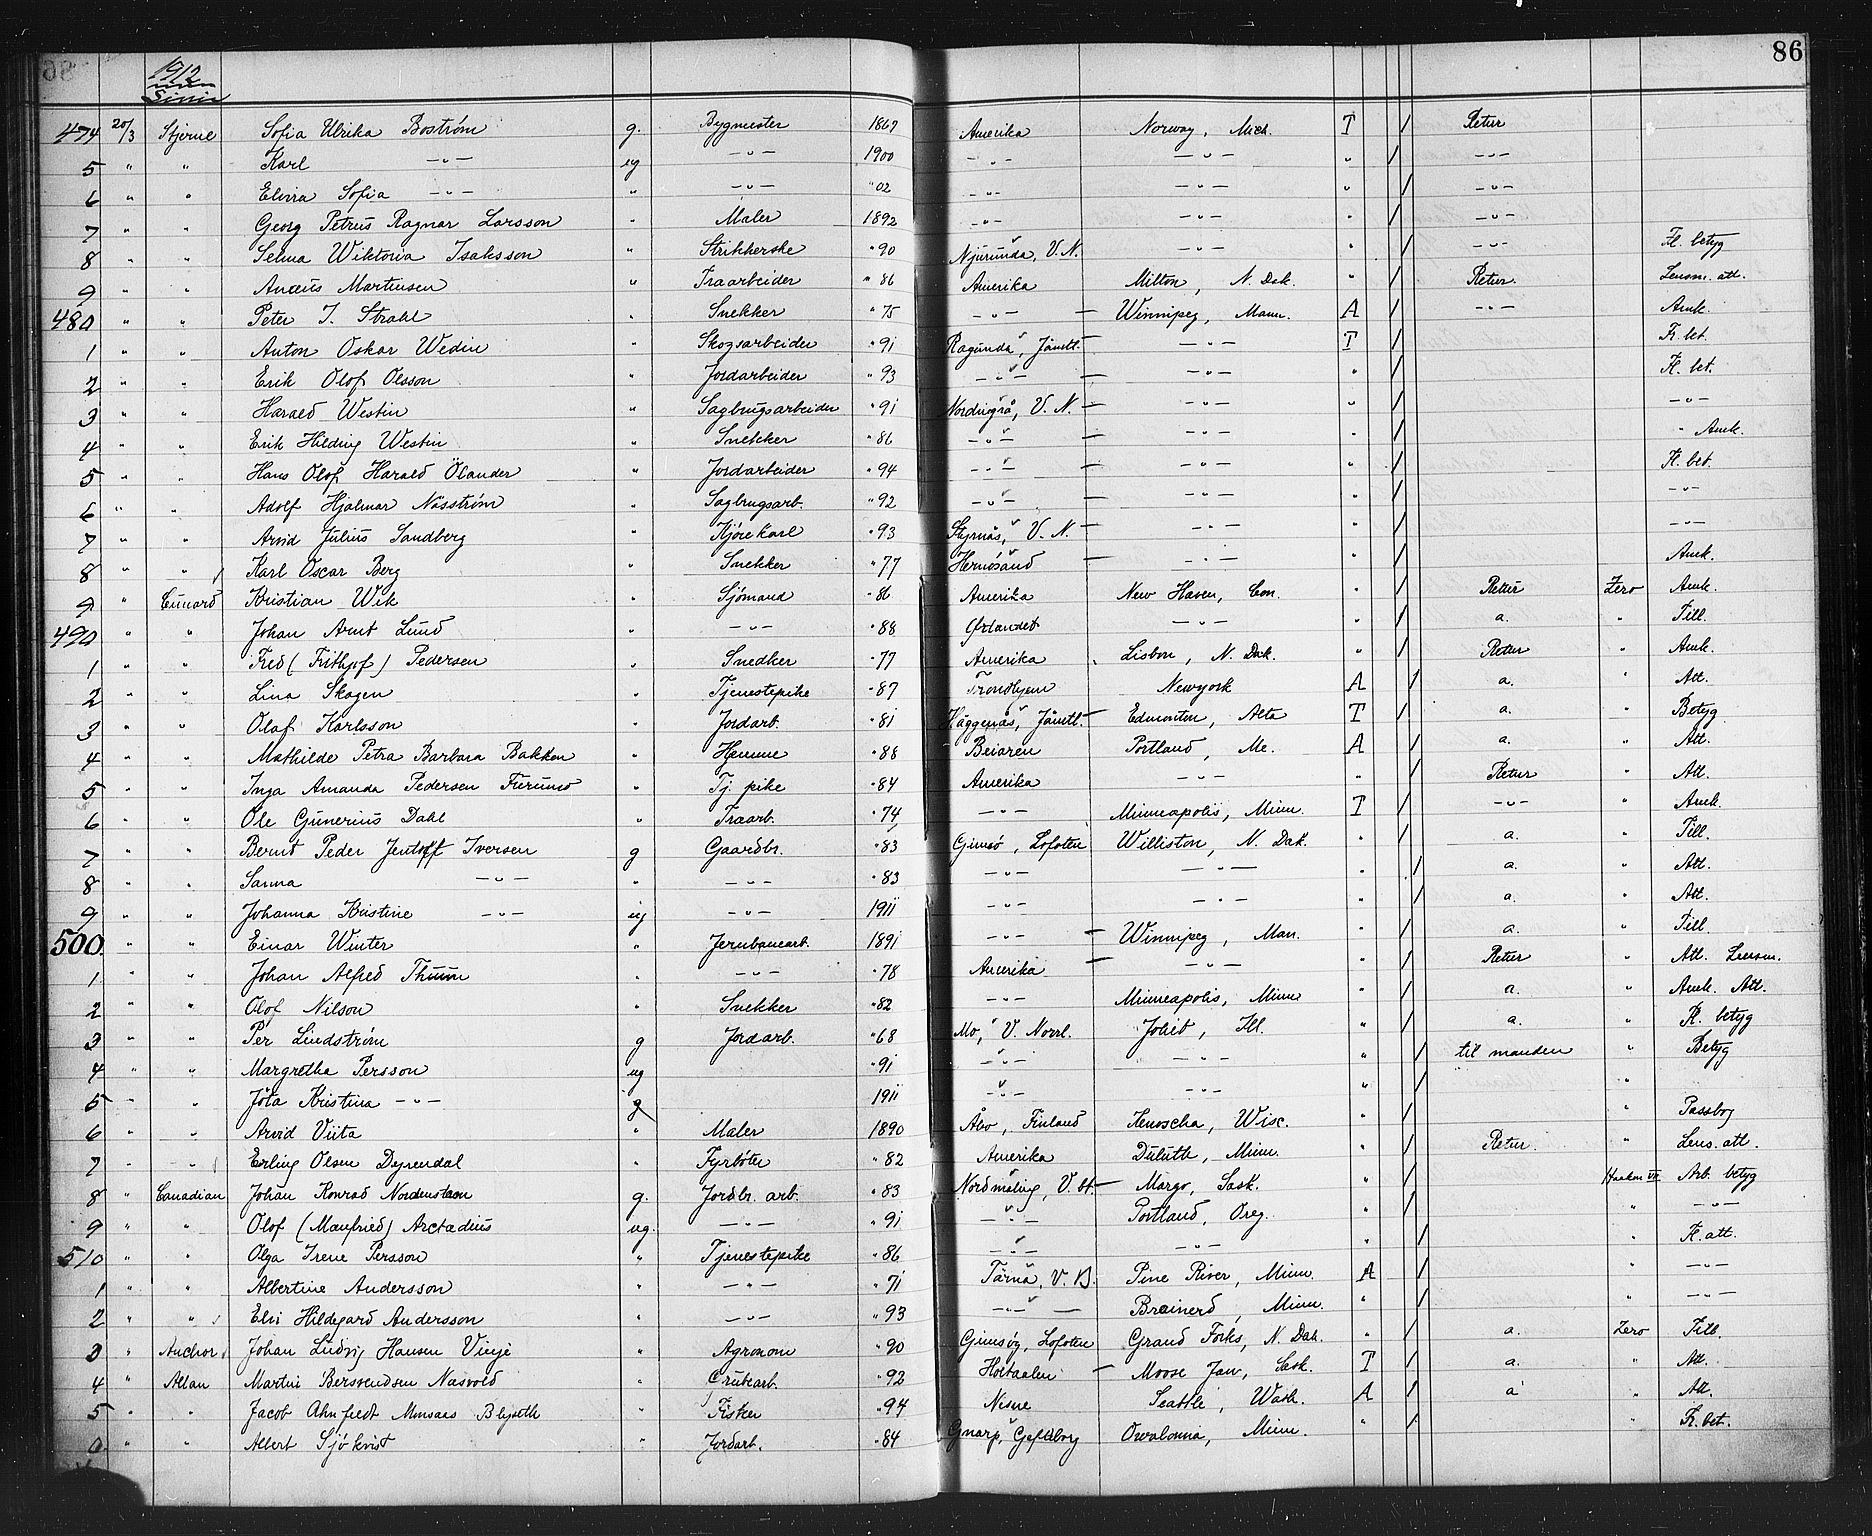 86
1912
474 20/3 Stjerne Sofia Ulrika Boström g. Bygmester 1867 Amerika Norway, Mich. T / Retur
5 " " Karl -"- ug -"- 1900 -"- -"- " / -"-
6 " " Elvira Sofia -"- " -"- "02 -"- -"- " / -"-
7 " " Georg Petrus Ragnar Larsson " Maler 1892 -"- -"- " / -"-
8 " " Selma Wiktoria Isaksson " Strikkerske "90 Njurunda, V. N. -"- " / -"- Fl. betyg
9 " " Anæus Martinsen " Træarbeider "86 Amerika Milton, N. Dak. " / Retur Lensm. att.
480 " " Peter J. Strahl " Snekker "75 -"- — Winnipeg, Mann. A / -"- Amk.
1 " " Anton Oskar Wedin " Skogsarbeider "91 Ragunda, Jämtl. — -"- T / Fl. bet.
2 " " Erik Olof Olsson " Jordarbeider "93 -"- — -"- " / Fl. bet.
3 " " Harald Westin " Sagbrugsarbeider "91 Nordingrå, V. N. — -"- " / -"-
4 " " Erik Hilding Westin " Snekker "86 -"- — -"- " / " Amk.
5 " " Hans Olof Harald Ölander " Jordarbeider "94 -"- — -"- " / Fl. bet.
6 " " Adolf Hjalmar Näsström " Sagbrugsarb. "92 -"- — -"- " / -"-
7 " " Arvid Julius Sandberg " Kjörekarl "93 Styrnäs, V. N. — -"- " / -"-
8 " " Karl Oscar Berg " Snekker "77 Hernösand — -"- " / Amk.
9 " Cunard Kristian Wik " Sjömand "86 Amerika New Haven, Con. " / Retur Zero Amk.
490 " " Johan Arnt Lund " -"- "88 Ørlandet -"- " / a. " Till.
1 " " Fred (Frithjof) Pedersen " Snedker "77 Amerika Lisbon, N. Dak. " / Retur " Amk.
2 " " Lina Skogen " Tjenestepike "87 Trondhjem Newyork A / a. " Att.
3 " " Olof Karlsson " Jordarb. "81 Häggenås, Jämtl. — Edmonton, Alta T / a. " Betyg
4 " " Mathilde Petra Barbara Bakken " Hemme "88 Beiaren Portland, Me. A / a. " Att.
5 " " Inga Amanda Pedersen Furumo " Tj. pike "84 Amerika -"- " / Retur " Att.
6 " " Ole Gunerius Dahl " Træarb. "74 -"- Minneapolis, Minn. T / -"- " Amk.
7 " " Bernt Peder Jentoff Iversen g Gaardbr. "83 Gimsö, Lofoten Williston, N. Dak. " / a. " Till.
8 " " Sanna -"- " -"- "83 -"- -"- / a. " Att.
9 " " Johanna Kristine -"- ug -"- 1911 -"- -"- " / a. " Att.
500 " " Einar Winter " Jernbanearb. 1891 -"- — Winnipeg, Man. " / a. " Till.
1 " " Johan Alfred Thuun " -"- "78 Amerika — -"- " / Retur " Att. Lensm.
2 " " Olof Nilson " Snekker "82 -"- Minneapolis, Minn " / a. " Amk. Att.
3 " " Per Lindström g Jordarb. "68 Mo, V. Norrl. Joliet, Ill. " / a. " Fl. betyg
4 " " Margretha Persson ug "91 -"- -"- " / til manden " Betyg
5 " " Jöta Kristina -"- g 1911 -"- -"- " / "
6 " " Arvid Viita " Maler 1890 Åbo, Finland Kenoscha, Wisc. " / " Passbog
7 " " Erling Olsen Dyrendal " Fyrböter "82 Amerika Duluth, Minn. " / Retur. " Lens. att.
8 " Canadian Johan Konrad Nordenstam g. Jordbr. arb. "83 Nordmaling, V. bt. — Margo, Sask. " / Haakon VII. Arb. betyg
9 " " Olof (Manfried) Arctadius ug. -"- "91 -"- Portland, Oreg. " / " -"-
510 " " Olga Irene Persson " Tjenestepike "86 -"- -"- " / " Fl. att.
1 " " Albertine Andersson " -"- "71 Tärna, V. B. Pine River, Minn. A / " -"-
2 " " Elvi Hildegard Andersson " -"- "93 -"- — Brainerd, Minn. " / " -"-
3 " Anchor Johan Ludvig Hansen Vinje " Agronom "90 Gimsöy, Lofoten Grand Forks, N. Dak. " / a. Zero Till.
4 " Allan Martin Bersvendsen Næsvold " Grubearb. "92 Holtaalen — Moose Jaw, Sask. T / a. " Att.
5 " " Jacob Ahnfeldt Monsaas Blyseth " Fisker "94 Nesne Seattle, Wash. A / a " Att.
6 " " Albert Sjökvist " Jordarb. "84 Gnarp, Gefleborg Owatonna, Minn. " / " Fl. bet.